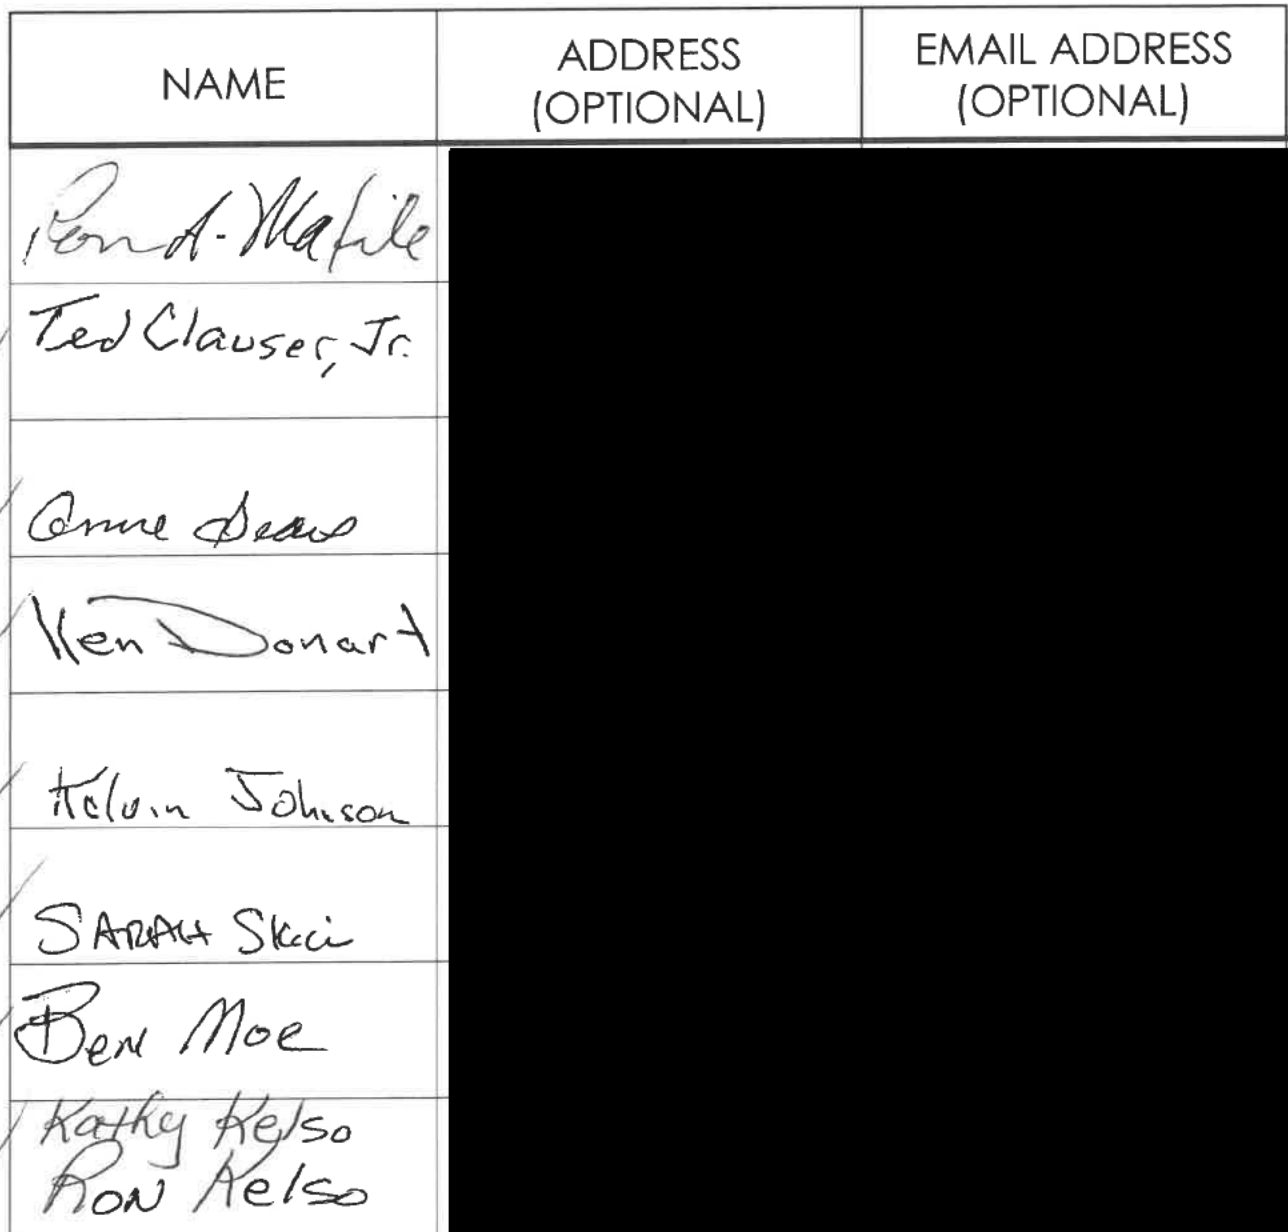 NAME
ADDRESS
(OPTIONAL)
EMAIL ADDRESS
(OPTIONAL)
Ron A. Mafile
Ted Clauser, Jr.
Anne
Ken Donart
Kelvin Johnson
SARAH
Ben Moe
Kathy Kelso
Ron Kelso